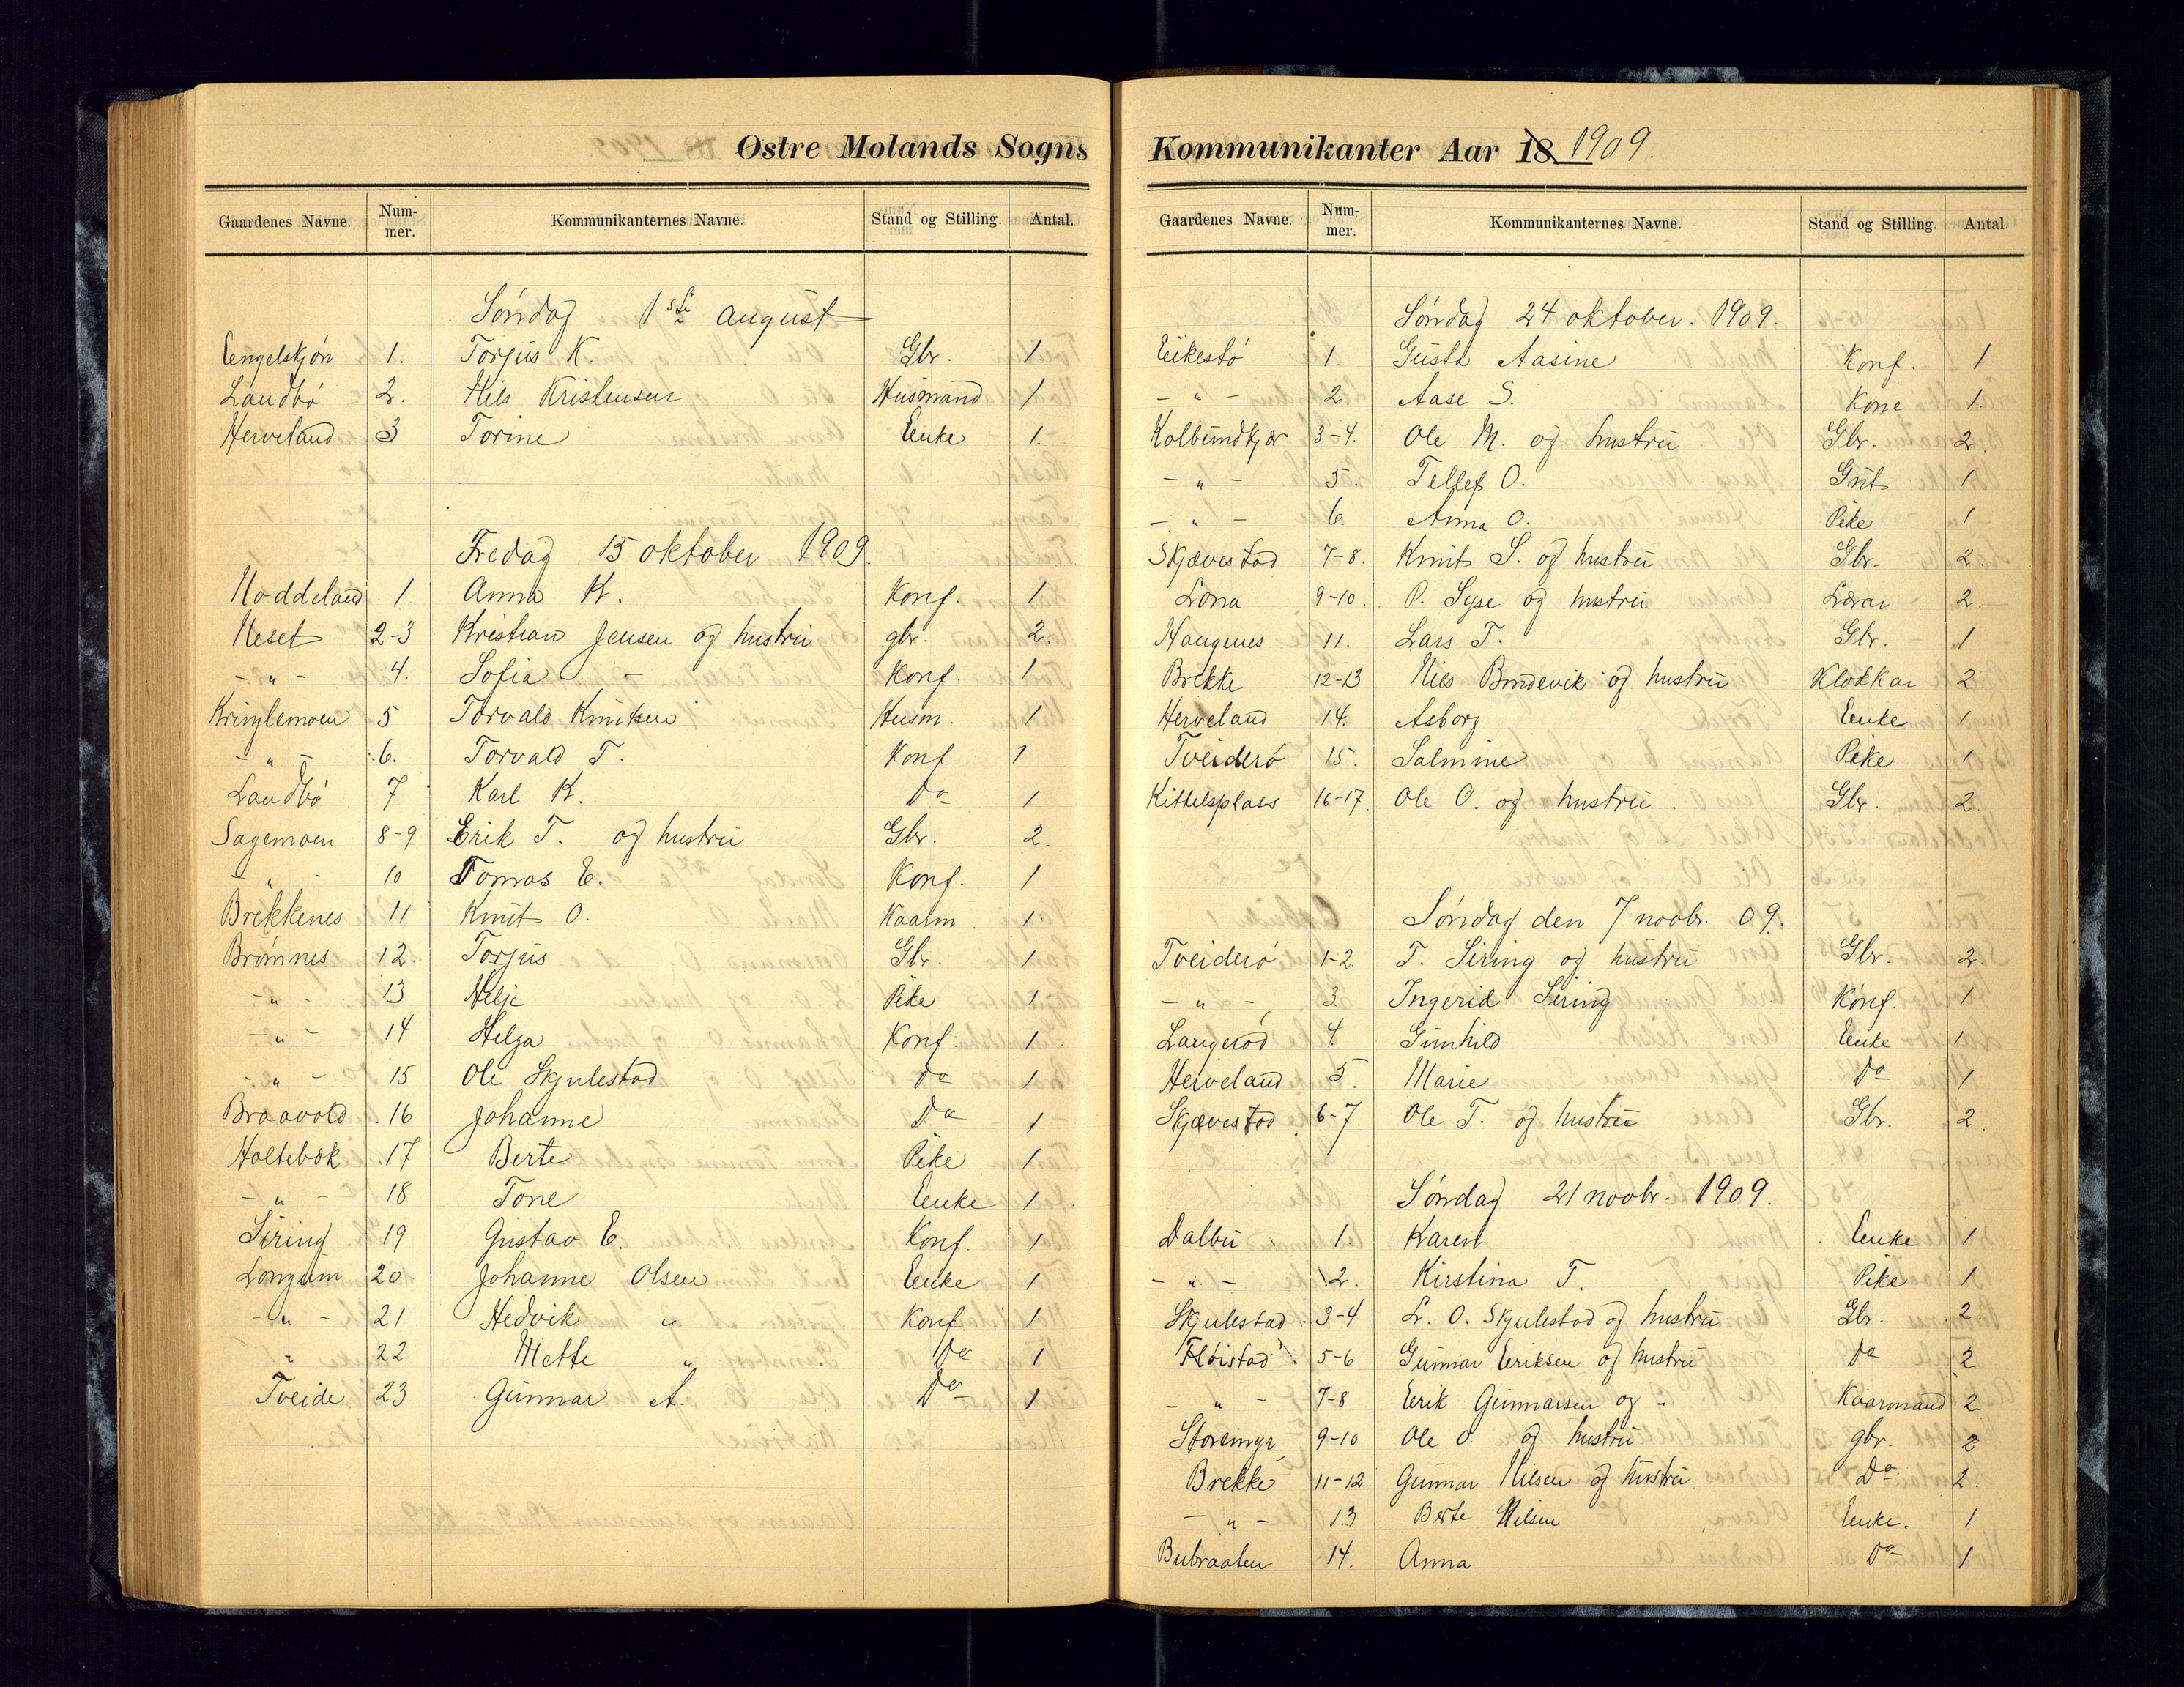 Østre Molands Sogns
Gaardenes Navne. Num-mer. Kommunikanternes Navne. Stand og Stilling. Antal.
Søndag 1ste august
Engelskjøn 1. Torjus K. Gbr. 1.
Landbø 2. Nils Kristensen Husmand 1
Herveland 3 Torine Enke 1.
Fredag 15 oktober 1909.
Noddeland 1 Anna K. Konf. 1
Neset 2-3 Kristian Jensen og hustru gbr. 2.
- " - 4. Sofia - Konf. 1
Kringlemoen 5 Torvald Knutsen Husm. 1
- " - 6. Torvald T. Konf 1
Landbø 7 Karl K. Do 1
Sagemoen 8-9 Erik T. og hustru Gbr. 2.
" 10 Tomas E. Konf. 1
Brekkenes 11 Knut O. Kaarm 1
Brømnes 12. Torjus Gbr. 1
- " - 13 Helje Pike 1
- " - 14 Helga Konf. 1
- " - 15 Ole Skjulestad Do 1
Braavold 16 Johanne Do 1
Holtebæk 17 Berte Pike 1
- " - 18 Tone Enke 1
Siring 19 Gustav E. Konf. 1
Longum 20 Johanne Olsen Enke 1
- " - 21 Hedvik " Konf 1
" 22 Mette " Do 1
Tveide 23 Gunnar A. Do 1
Kommunikanter Aar 18 1909.
Gaardenes Navne. Num-mer. Kommunikanternes Navne. Stand og Stilling. Antal.
Søndag 24 oktober. 1909.
Eikestø 1. Gusta Aasine Konf. 1
- " - 2. Aase S. Kone 1.
Kolbundkjær 3-4. Ole M. og hustru Gbr. 2.
- " - 5. Tellef O. Gut 1
- " - 6. Anna O. Pike 1
Skjævestad 7-8. Knut S. og hustru Gbr. 2.
Lona 9-10. P. Syse og hustru Lærar 2.
Haugenes 11. Lars T. Gbr. 1
Brekke 12-13 Nils Bondevik og hustru Klokkar 2.
Herveland 14. Asborg Enke 1
Tveiderø 15. Salmine Pike 1
Kittelsplass 16-17. Ole O. og hustru Gbr. 2.
Søndag den 7 novbr. 09.
Tveiderø 1-2. T. Siring og hustru Gbr. 2.
- " - 3. Ingerid Siring Konf. 1
Langerød 4. Gunhild Enke 1
Herveland 5. Marie Do 1
Skjævestad 6-7. Ole T. og hustru Gbr. 2.
Søndag 21 novbr. 1909.
Dalbu 1. Karen Enke 1
- " - 2. Kirstina T. Pike 1
Skjulestad 3-4 L. O. Skjulestad og hustru Gbr. 2.
Fløistad 5-6 Gunnar Eriksen og hustru Do 2
- " - 7-8 Eerik Gunnarsen og " Kaarmand 2
Storemyr 9-10 Ole O. og hustru gbr. 2
Brekke 11-12 Gunnar Nilsen og hustru Do 2.
- " - 13 Berte Nilsen Enke. 1
Bubraaten 14. Anna Do 1